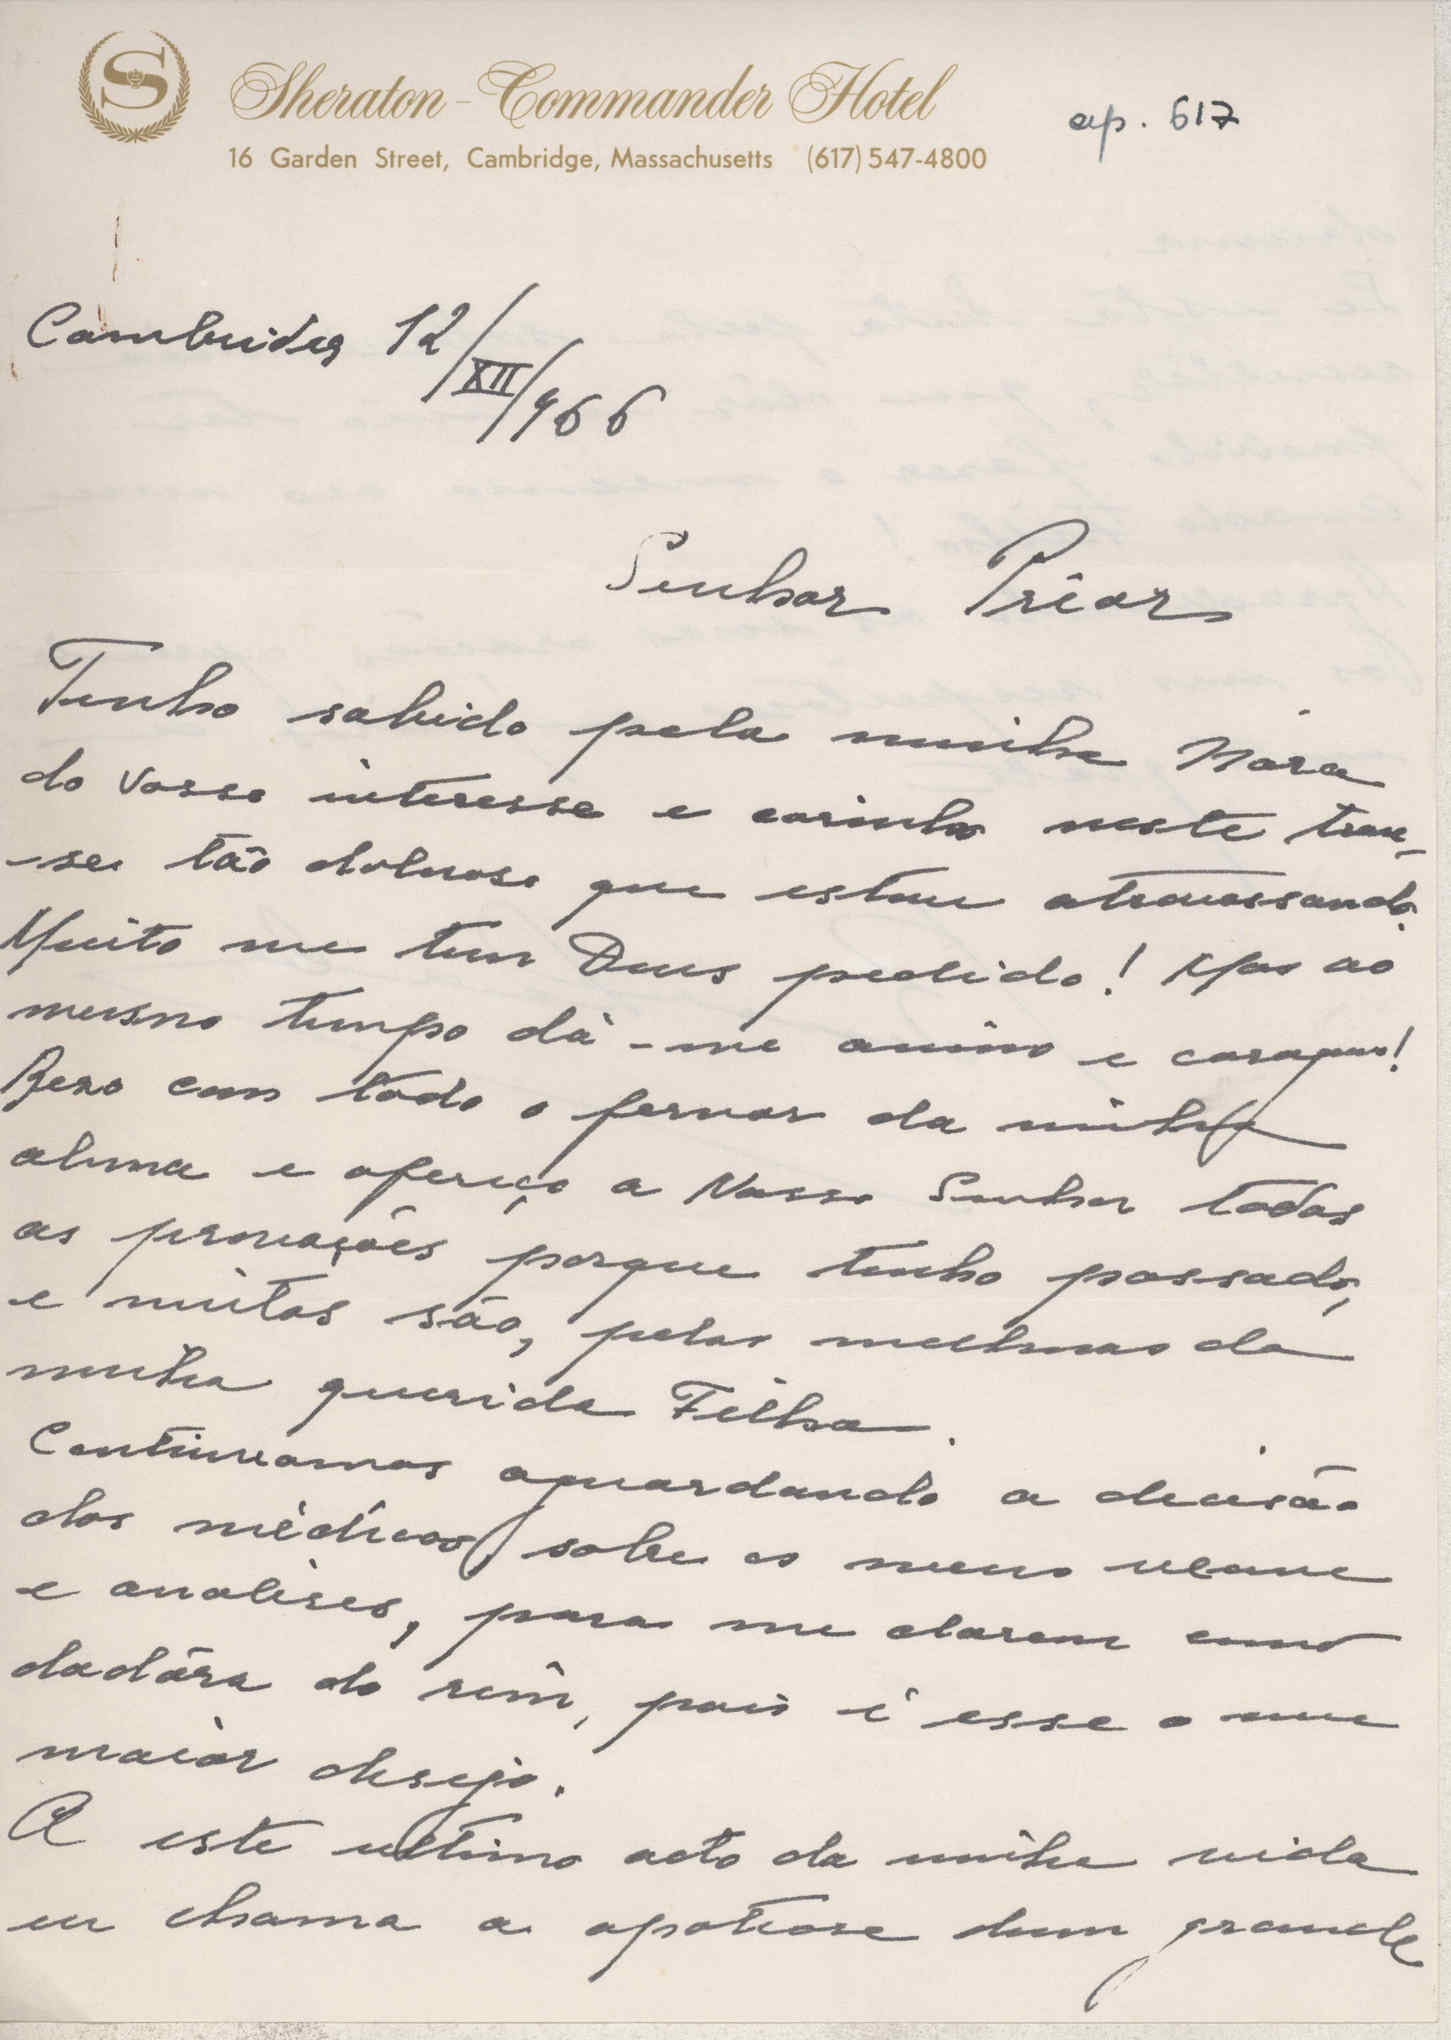 Sheraton-Commander Hotel
16 Garden Street, Cambridge, Massachusetts (617) 547-4800
ap. 617
Cambridge 12/XII/966
Senhor Priôr
Tenho sabido pela minha Nóra
do Vosso interesse e carinho neste tran-
-se tão doloroso que estou atravessando.
Muito me tem Deus pedido! Mas ao
mesmo tempo dà-me animo e coragem!
Rezo com todo o fervor da minha
alma e ofereço a Nosso Senhor todas
as provações porque tenho passado,
e muitas são, pelas melhoras da
minha querida Filha.
Continuamos aguardando a decisão
dos médicos, sobre os meus
e análises, para me darem como
dadôra do rim, pois é esse o meu
maiòr desejo.
A este ultimo acto da minha vida
eu chamo a apoteose dum grande